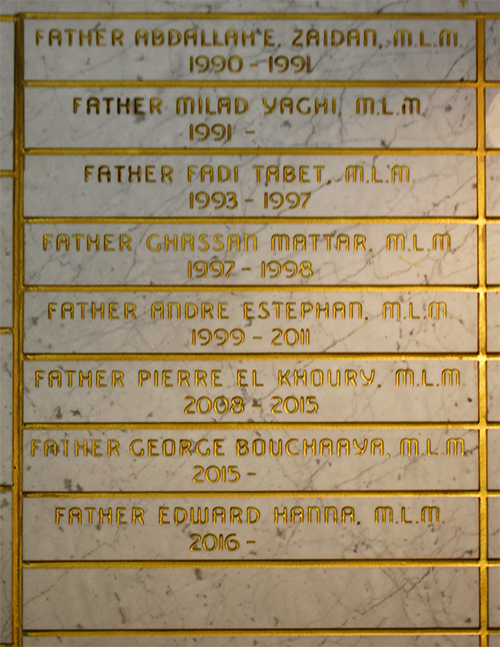 FATHER ABDALLAH E. ZAIDAN, M.L.M.
1990 - 1991
FATHER MILAD YAGHI, M.L.M.
1991 -
FATHER FADI TABET, M.L.M.
1993 - 1997
FATHER GHASSAN MATTAR, M.L.M.
1997 - 1998
FATHER ANDRE ESTEPHAN, M.L.M.
1999 - 2011
FATHER PIERRE EL KHOURY, M.L.M.
2008 - 2015
FATHER GEORGE BOUCHAAYA, M.L.M.
2015 -
FATHER EDWARD HANNA, M.L.M.
2016 -